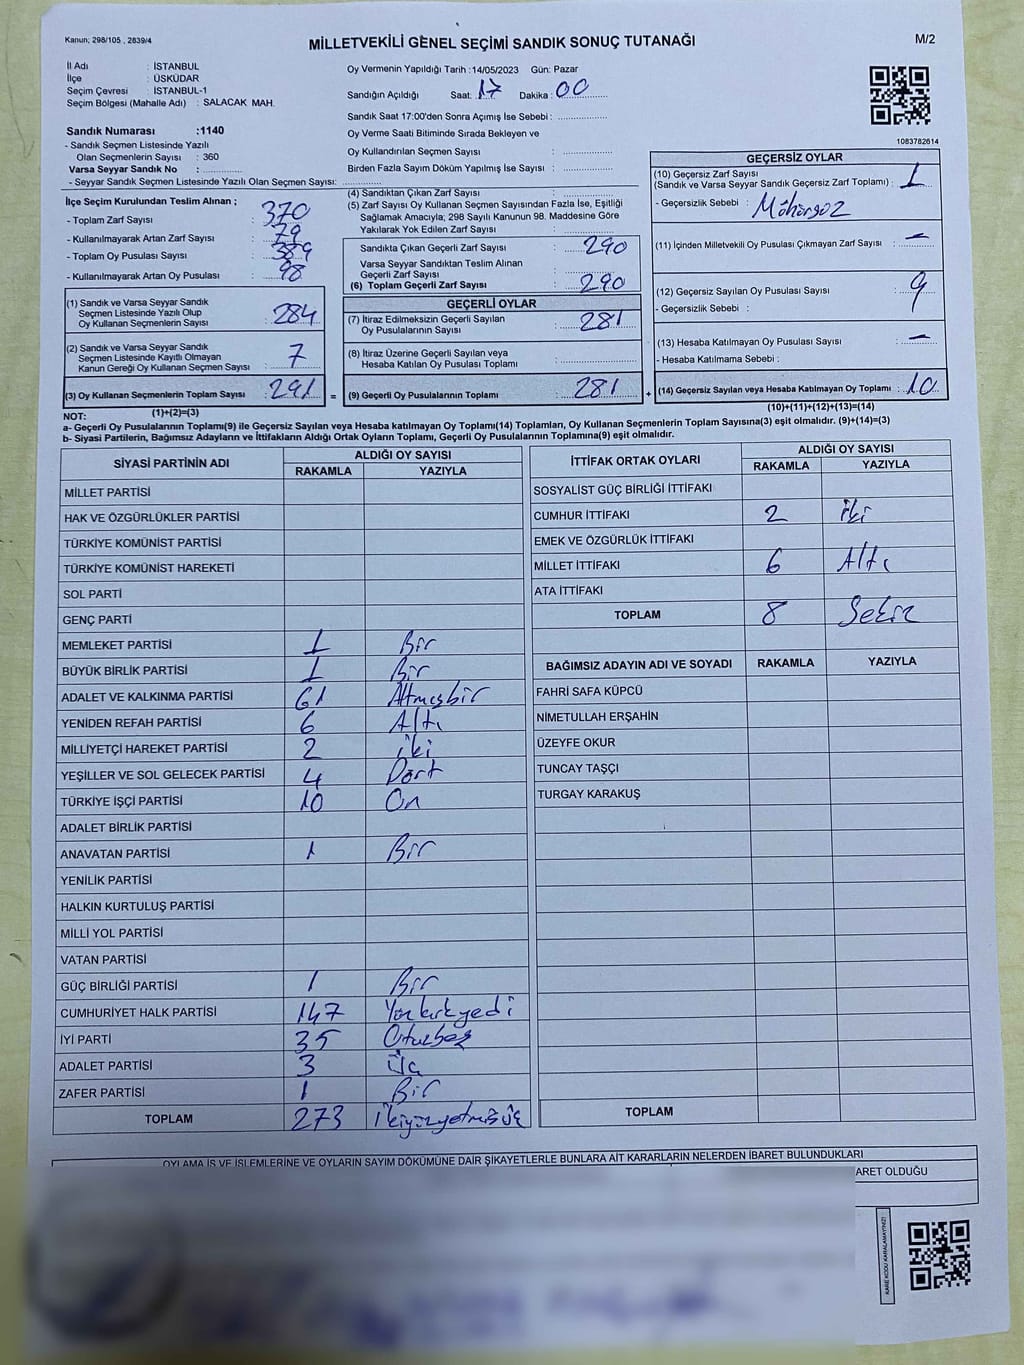 Kanun; 298/105 , 2839/4
MİLLETVEKİLİ GENEL SEÇİMİ SANDIK SONUÇ TUTANAĞI
M/2
İl Adı : İSTANBUL
İlçe : ÜSKÜDAR
Seçim Çevresi : İSTANBUL-1
Seçim Bölgesi (Mahalle Adı) : SALACAK MAH.
Sandık Numarası :1140
- Sandık Seçmen Listesinde Yazılı
Olan Seçmenlerin Sayısı : 360
Varsa Seyyar Sandık No :
- Seyyar Sandık Seçmen Listesinde Yazılı Olan Seçmen Sayısı:
Oy Vermenin Yapıldığı Tarih :14/05/2023 Gün: Pazar
Sandığın Açıldığı Saat: 17 Dakika : 00
Sandık Saat 17:00'den Sonra Açımış İse Sebebi :
Oy Verme Saati Bitiminde Sırada Bekleyen ve
Oy Kullandırılan Seçmen Sayısı :
Birden Fazla Sayım Döküm Yapılmış İse Sayısı :
1083782614
İlçe Seçim Kurulundan Teslim Alınan ;
- Toplam Zarf Sayısı : 370
- Kullanılmayarak Artan Zarf Sayısı : 79
- Toplam Oy Pusulası Sayısı : 389
- Kullanılmayarak Artan Oy Pusulası : 98
(1) Sandık ve Varsa Seyyar Sandık
Seçmen Listesinde Yazılı Olup
Oy Kullanan Seçmenlerin Sayısı : 284
(2) Sandık ve Varsa Seyyar Sandık
Seçmen Listesinde Kayıtlı Olmayan
Kanun Gereği Oy Kullanan Seçmen Sayısı : 7
(3) Oy Kullanan Seçmenlerin Toplam Sayısı : 291 =
(4) Sandıktan Çıkan Zarf Sayısı :
(5) Zarf Sayısı Oy Kullanan Seçmen Sayısından Fazla İse, Eşitliği
Sağlamak Amacıyla; 298 Sayılı Kanunun 98. Maddesine Göre
Yakılarak Yok Edilen Zarf Sayısı :
Sandıkta Çıkan Geçerli Zarf Sayısı : 290
Varsa Seyyar Sandıktan Teslim Alınan
Geçerli Zarf Sayısı :
(6) Toplam Geçerli Zarf Sayısı : 290
GEÇERLİ OYLAR
(7) İtiraz Edilmeksizin Geçerli Sayılan
Oy Pusulalarının Sayısı : 281
(8) İtiraz Üzerine Geçerli Sayılan veya
Hesaba Katılan Oy Pusulası Toplamı :
(9) Geçerli Oy Pusulalarının Toplamı : 281 +
GEÇERSİZ OYLAR
(10) Geçersiz Zarf Sayısı
(Sandık ve Varsa Seyyar Sandık Geçersiz Zarf Toplamı) : 1
- Geçersizlik Sebebi : Mühürsüz
(11) İçinden Milletvekili Oy Pusulası Çıkmayan Zarf Sayısı : –
(12) Geçersiz Sayılan Oy Pusulası Sayısı : 9
- Geçersizlik Sebebi :
(13) Hesaba Katılmayan Oy Pusulası Sayısı : –
- Hesaba Katılmama Sebebi :
(14) Geçersiz Sayılan veya Hesaba Katılmayan Oy Toplamı : 10
NOT: (1)+(2)=(3)
(10)+(11)+(12)+(13)=(14)
a- Geçerli Oy Pusulalarının Toplamı(9) ile Geçersiz Sayılan veya Hesaba katılmayan Oy Toplamı(14) Toplamları, Oy Kullanan Seçmenlerin Toplam Sayısına(3) eşit olmalıdır. (9)+(14)=(3)
b- Siyasi Partilerin, Bağımsız Adayların ve İttifakların Aldığı Ortak Oyların Toplamı, Geçerli Oy Pusulalarının Toplamına(9) eşit olmalıdır.
SİYASİ PARTİNİN ADI
ALDIĞI OY SAYISI
RAKAMLA YAZIYLA
MİLLET PARTİSİ
HAK VE ÖZGÜRLÜKLER PARTİSİ
TÜRKİYE KOMÜNİST PARTİSİ
TÜRKİYE KOMÜNİST HAREKETİ
SOL PARTİ
GENÇ PARTİ
MEMLEKET PARTİSİ 1 Bir
BÜYÜK BİRLİK PARTİSİ 1 Bir
ADALET VE KALKINMA PARTİSİ 61 Altmışbir
YENİDEN REFAH PARTİSİ 6 Altı
MİLLİYETÇİ HAREKET PARTİSİ 2 iki
YEŞİLLER VE SOL GELECEK PARTİSİ 4 Dört
TÜRKİYE İŞÇİ PARTİSİ 10 On
ADALET BİRLİK PARTİSİ
ANAVATAN PARTİSİ 1 Bir
YENİLİK PARTİSİ
HALKIN KURTULUŞ PARTİSİ
MİLLİ YOL PARTİSİ
VATAN PARTİSİ
GÜÇ BİRLİĞİ PARTİSİ 1 Bir
CUMHURİYET HALK PARTİSİ 147 Yüzkırkyedi
İYİ PARTİ 35 Otuzbeş
ADALET PARTİSİ 3 Üç
ZAFER PARTİSİ 1 Bir
TOPLAM 273 ikiyüzyetmişüç
İTTİFAK ORTAK OYLARI
ALDIĞI OY SAYISI
RAKAMLA YAZIYLA
SOSYALİST GÜÇ BİRLİĞİ İTTİFAKI
CUMHUR İTTİFAKI 2 iki
EMEK VE ÖZGÜRLÜK İTTİFAKI
MİLLET İTTİFAKI 6 Altı
ATA İTTİFAKI
TOPLAM 8 Sekiz
BAĞIMSIZ ADAYIN ADI VE SOYADI RAKAMLA YAZIYLA
FAHRİ SAFA KÜPCÜ
NİMETULLAH ERŞAHİN
ÜZEYFE OKUR
TUNCAY TAŞÇI
TURGAY KARAKUŞ
TOPLAM
OYLAMA İŞ VE İŞLEMLERİNE VE OYLARIN SAYIM DÖKÜMÜNE DAİR ŞİKAYETLERLE BUNLARA AİT KARARLARIN NELERDEN İBARET BULUNDUKLARI
BARET OLDUĞU
KARE KODU KARALAMAYINIZ!